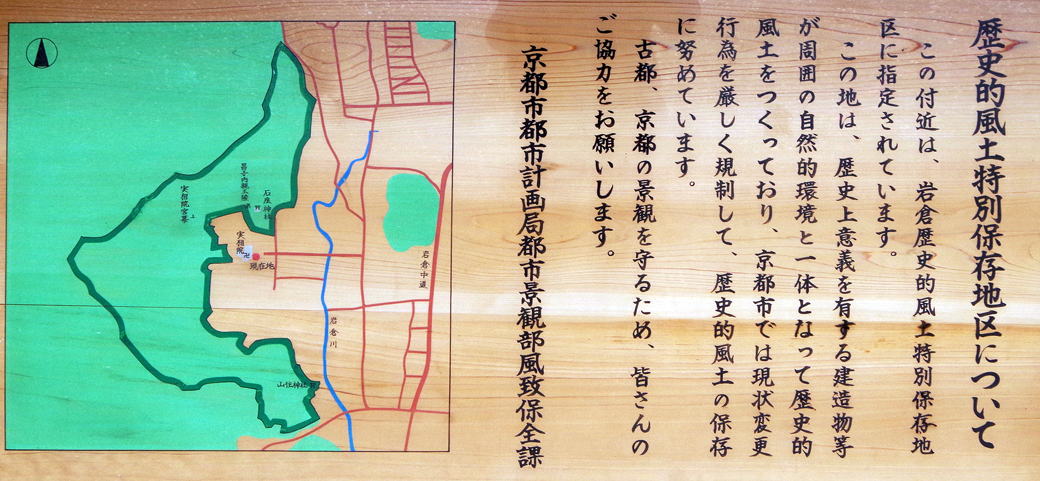 歴史的風土特別保存地区について
この付近は、岩倉歴史的風土特別保存地
区に指定されています。
この地は、歴史上意義を有する建造物等
が周囲の自然的環境と一体となって歴史的
風土をつくっており、京都市では現状変更
行為を厳しく規制して、歴史的風土の保存
に努めています。
古都、京都の景観を守るため、皆さんの
ご協力をお願いします。
京都市都市計画局都市景観部風致保全課
岩倉中通
岩倉川
石座神社
実相院宮墓
実相院
現在地
山住神社